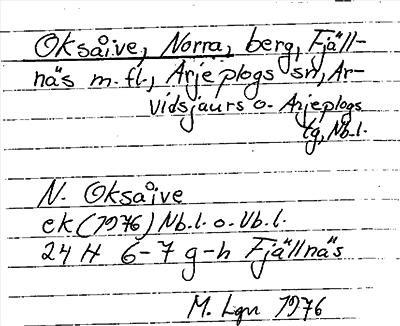 Oksåive, Norra, berg, Fjäll-
näs m.fl., Arjeplogs sn, Ar-
vidsjaurs o. Arjeplogs
tg, Nb.l.
N. Oksåive
ek (1976) Nb.l. o. Vb.l.
24 H 6-7 g-h Fjällnäs
M. Lgn 1976